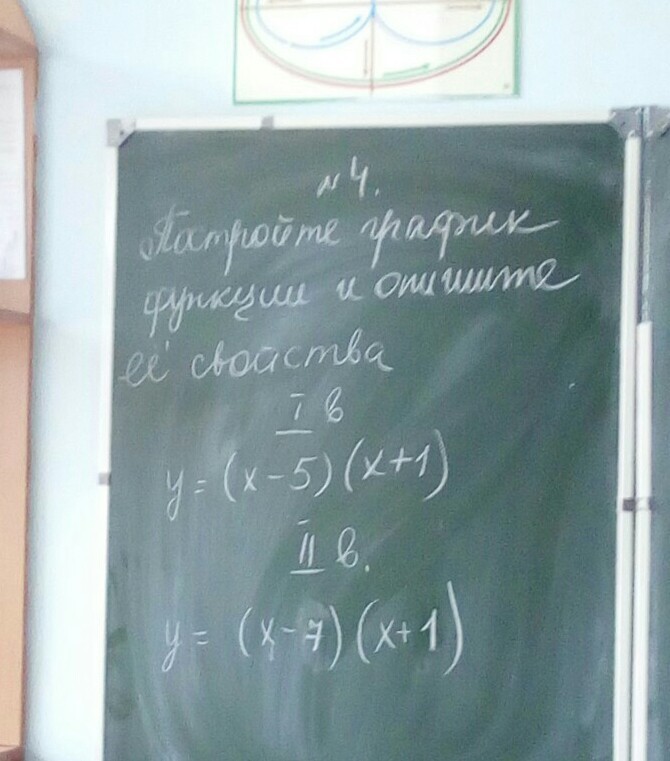 №4.
Постройте график
функции и опишите
её свойства
I в
y = (x-5)(x+1)
II в.
y = (x-7)(x+1)